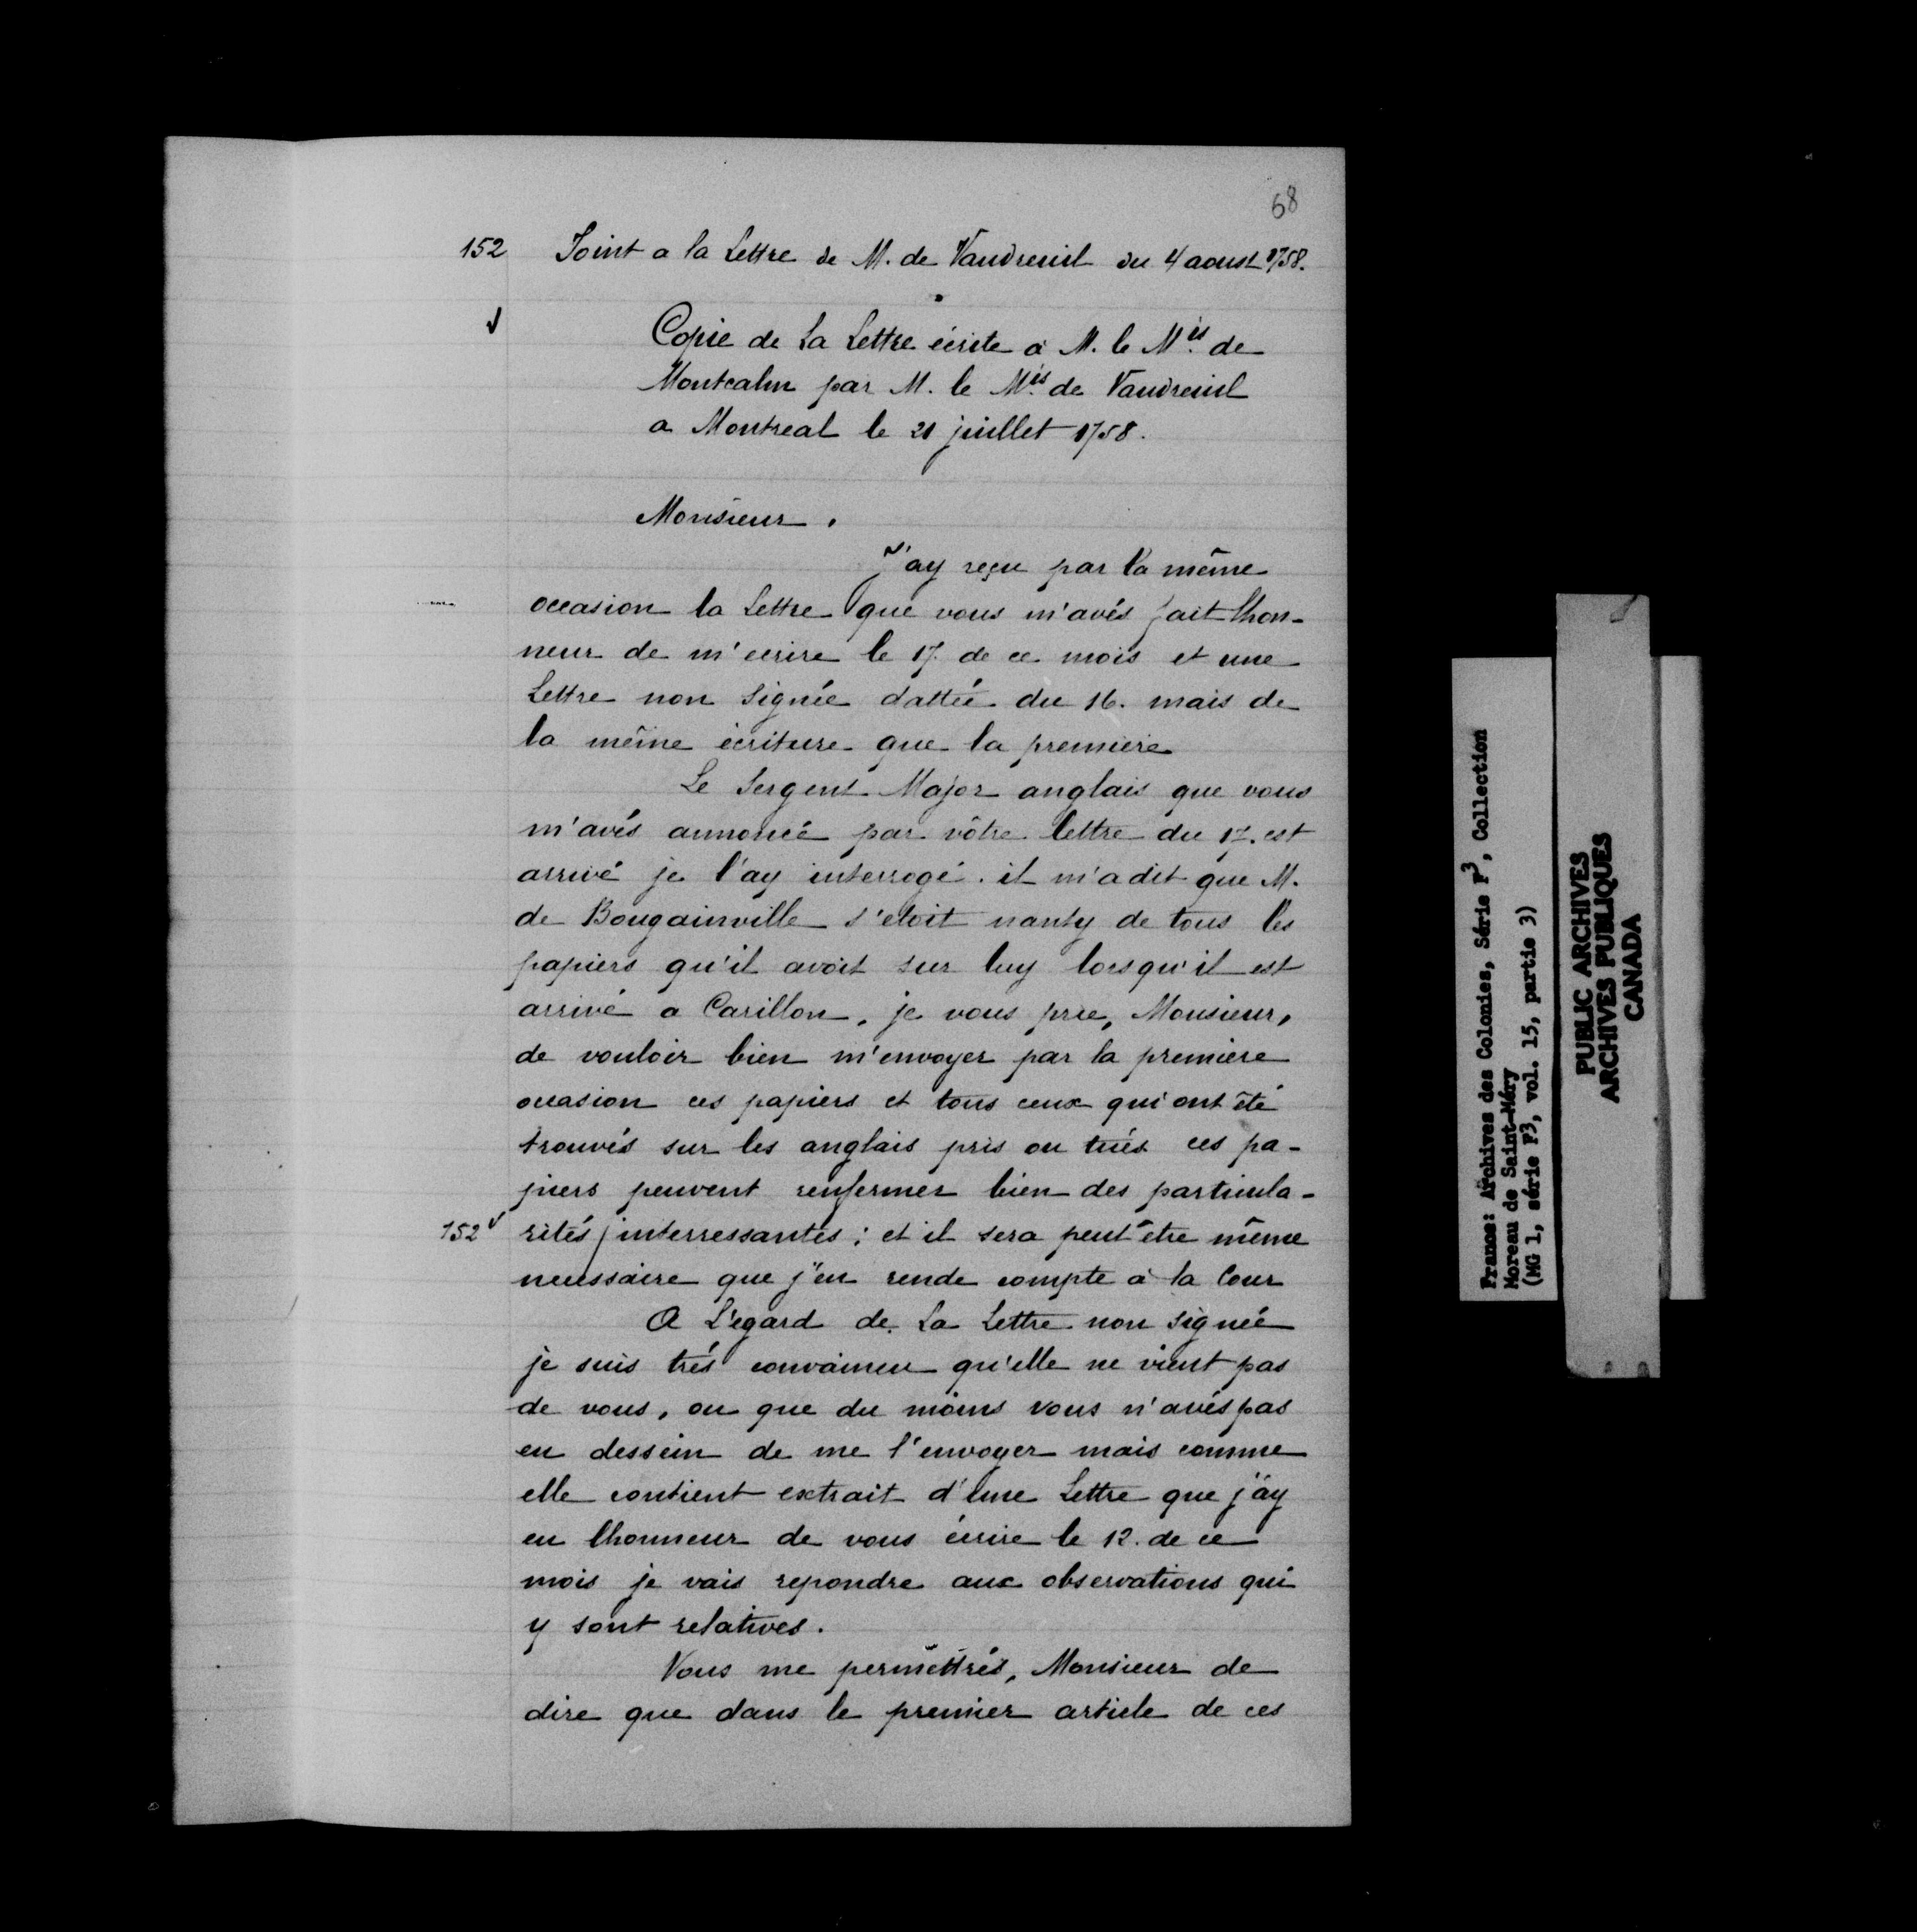 68
152 Joint a la Lettre de M. de Vaudreuil du 4 aoust 1758.
Copie de La Lettre écrite à M. le Mis de
Montcalm par M. le Mis de Vaudreuil
a Montreal le 21 juillet 1758.
Monsieur.
J'ay reçu par la même
occasion la Lettre que vous m'avés fait lhon-
neur de m'ecrire le 17. de ce mois et une
Lettre non Signée dattée du 16. mais de
la même écriture que la premiere
Le Sergent Major anglais que vous
m'avés annoncé par vôtre lettre du 17. est
arrivé je l'ay interrogé. il m'a dit que M.
de Bougainville s'etoit nanty de tous les
papiers qu'il avoit sur luy lorsqu'il est
arrivé a Carillon, je vous prie, Monsieur,
de vouloir bien m'envoyer par la premiere
occasion ces papiers et tous ceux qui ont été
trouvés sur les anglais pris ou tués ces pa-
piers peuvent renfermer bien des particula-
152 v rités / interressantes ; et il sera peut être même
necessaire que j'en rende compte à la Cour
A L'egard de La Lettre non signée
je suis trés convaincu qu'elle ne vient pas
de vous, ou que du moins vous n'avés pas
eu dessein de me l'envoyer mais comme
elle contient extrait d'une Lettre que j'ay
eu lhonneur de vous écrire le 12. de ce
mois je vais repondre aux observations qui
y sont relatives.
Vous me permettrés, Monsieur de
dire que dans le premier article de ces
France: Archives des Colonies, Série F3, Collection
Moreau de Saint-Méry
(MG 1, série F3, vol. 15, partie 3)
PUBLIC ARCHIVES
ARCHIVES PUBLIQUES
CANADA